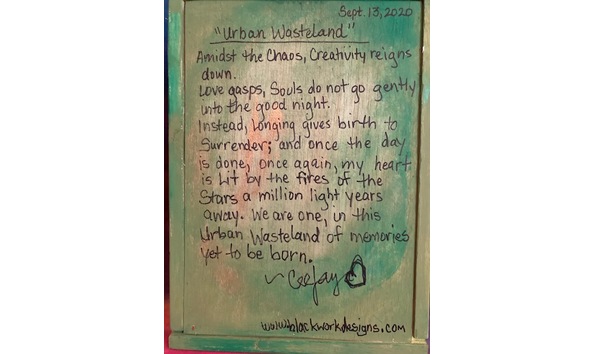 Sept. 13, 2020
"Urban Wasteland"
Amidst the Chaos, Creativity reigns
down.
Love gasps, Souls do not go gently
into the good night.
Instead, Longing gives birth to
Surrender; and once the day
is done, once again, my heart
is Lit by the fires of the
Stars a million light years
away. We are one, in this
Urban Wasteland of memories
yet to be born.
~ CeeJay
www.blackworkdesigns.com